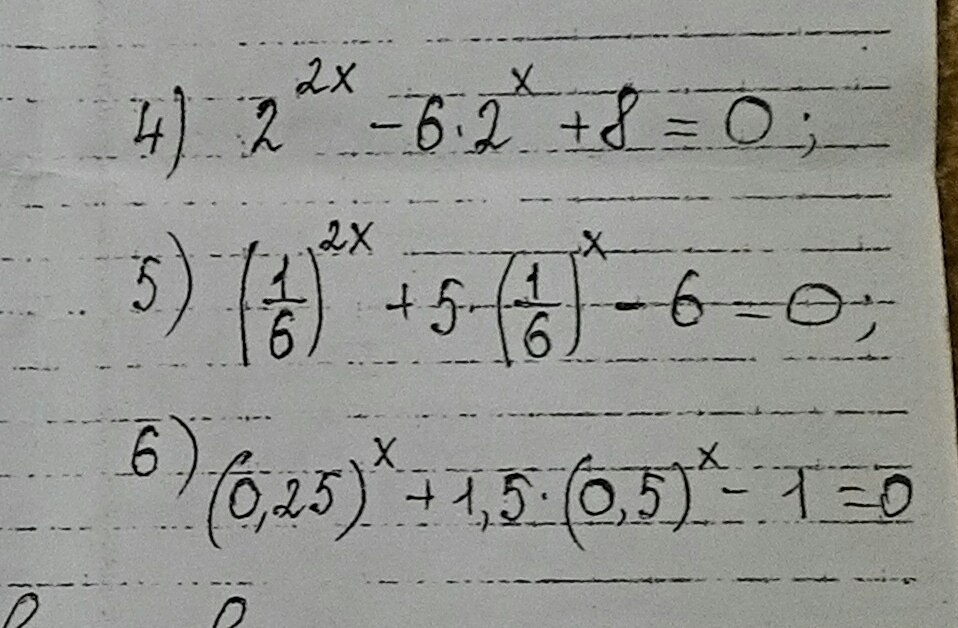 4) 2^{2x} - 6·2^{x} + 8 = 0;
5) (1/6)^{2x} + 5·(1/6)^{x} - 6 = 0;
6) (0,25)^{x} + 1,5·(0,5)^{x} - 1 = 0